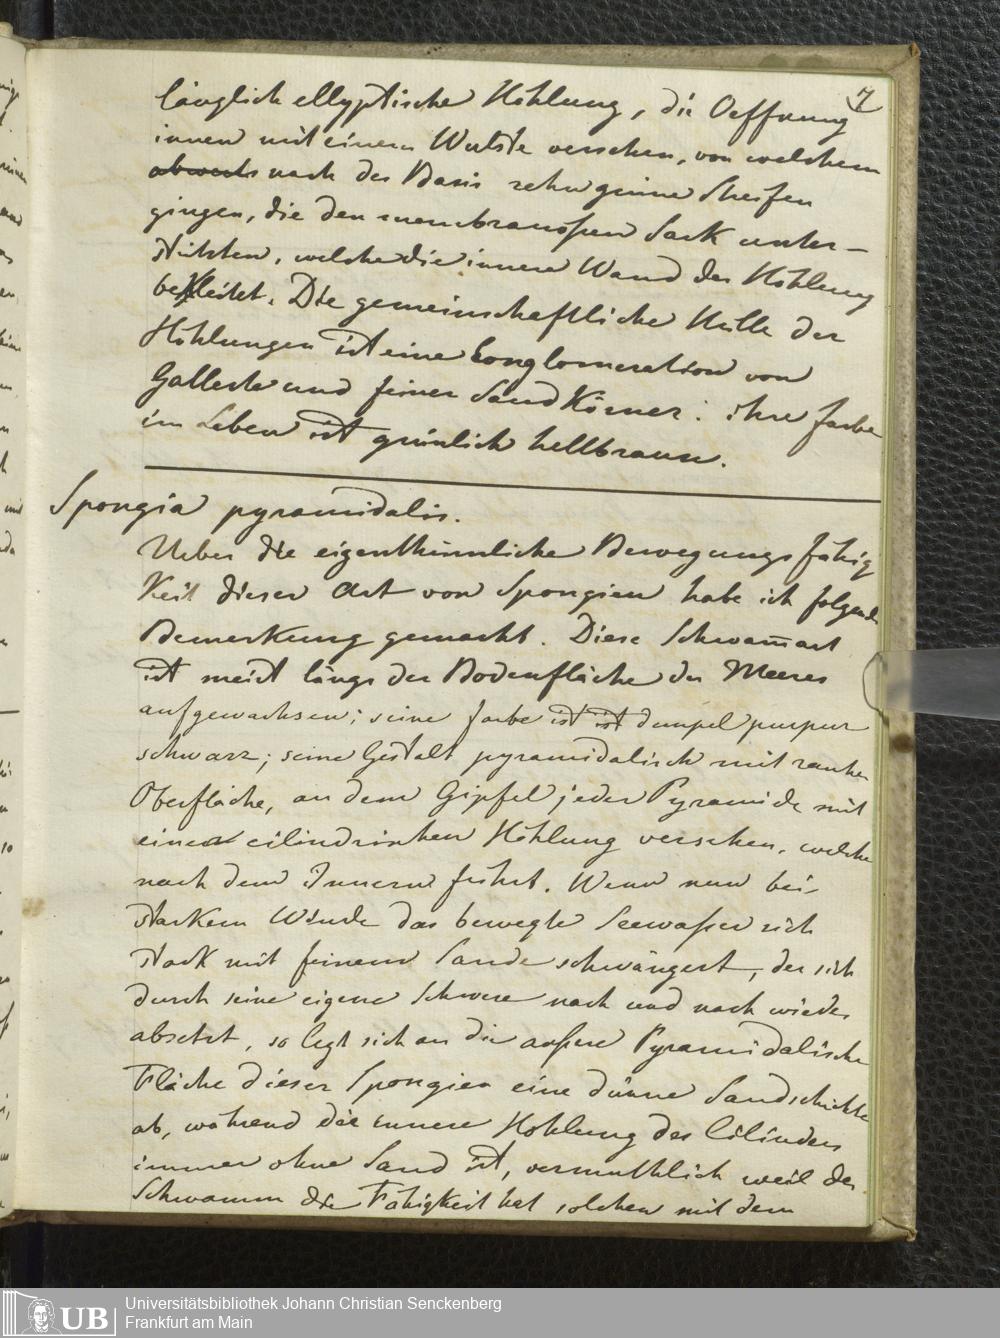 7
länglich ellyptische Höhlung, die Oeffnung
innen mit einem Wulste versehen, von welchem
nach der Basis zehn grüne Streifen
gingen, die den membranosen Sack unter-
stützten, welche die innere Wand der Höhlung
bekleidet. Die gemeinschaftliche Hülle der
Höhlungen ist eine Conglomeration von
Gallerte und feiner Sand Körner: ihre farbe
im Leben ist grünlich hellbraun.
Spongia pyramidalis.
Ueber die eigenthümliche Bewegungs fähig
Keit dieser Art von Spongien habe ich folgende
Bemerkung gemacht. Diese Schwam̅art
ist meist längs der Bodenfläche des Meeres
aufgewachsen; seine farbe ist ist dunkel purpur
schwarz; seine Gestalt pyramidalisch mit rauher
Oberfläche, an dem Gipfel jeder Pyramide mit
einer cilindrischen Höhlung versehen, welche
nach dem Innern führt. Wenn nun bei
starkem Winde das bewegte Seewasser sich
stark mit feinem Sande schwängert, der sich
durch seine eigene Schwere nach und nach wieder
absetzt, so legt sich an die aüsere Pyramidalische
Fläche dieser Spongien eine dünne Sandschichte
ab, während die innere Hohlung des Cilinders
immer ohne Sand ist, vermuthlich weil der
Schwamm die Fähigkeit hat solchen mit dem
UB
Universitätsbibliothek Johann Christian Senckenberg
Frankfurt am Main